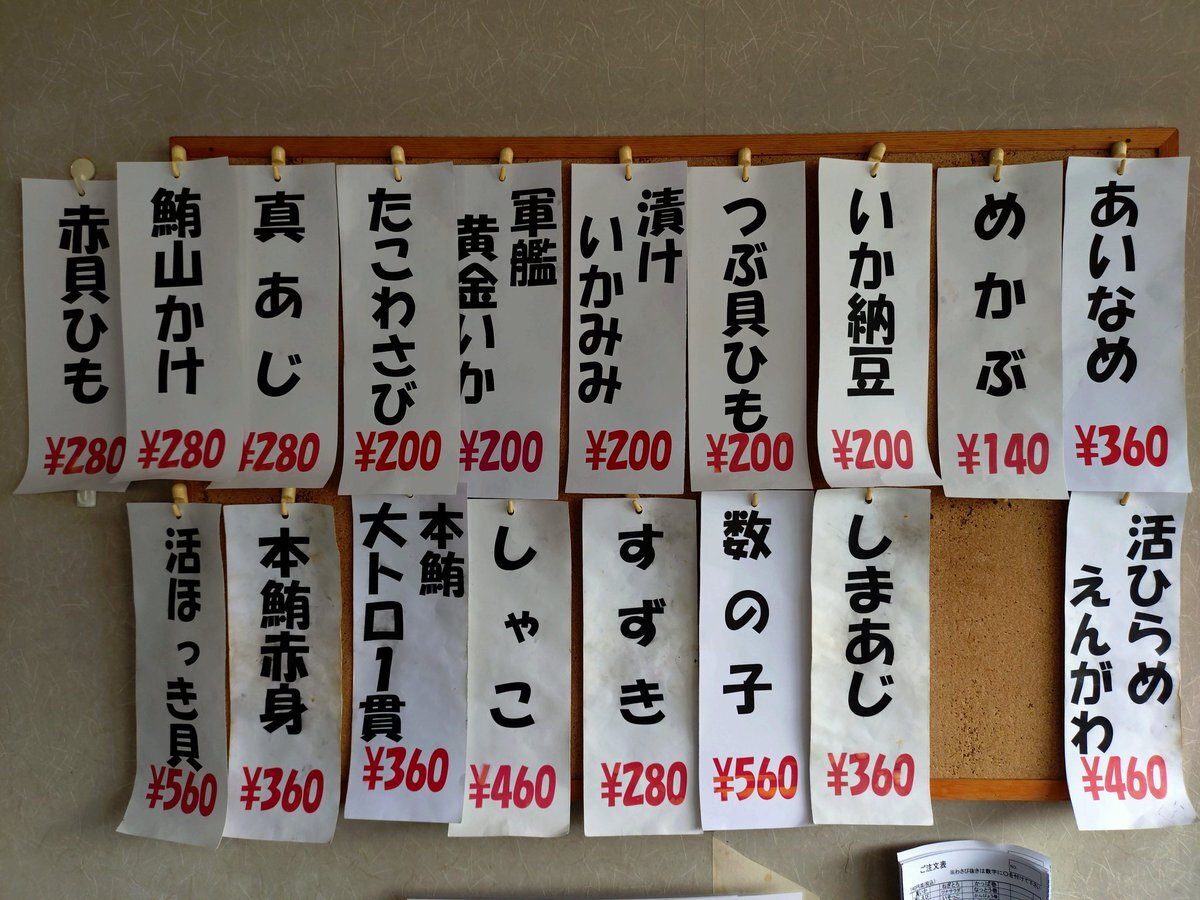 あいなめ
¥360
めかぶ
¥140
いか納豆
¥200
つぶ貝ひも
¥200
漬け
いかみみ
¥200
軍艦
黄金いか
¥200
たこわさび
¥200
真あじ
¥280
鮪山かけ
¥280
赤貝ひも
¥280
活ひらめ
えんがわ
¥460
しまあじ
¥360
数の子
¥560
すずき
¥280
しゃこ
¥460
本鮪
大トロ1貫
¥360
本鮪赤身
¥360
活ほっき貝
¥560
ご注文表